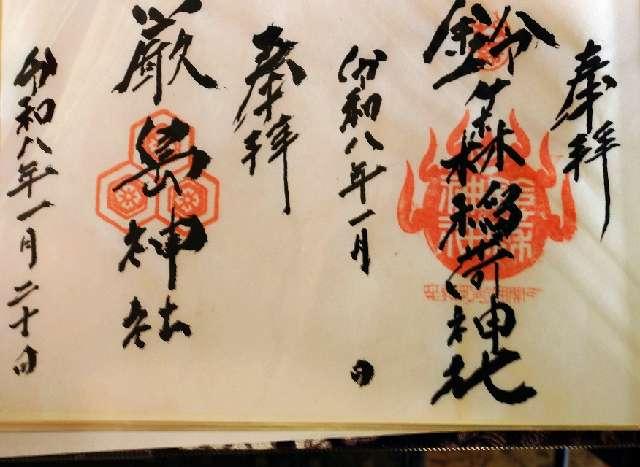 奉拝
鈴ヶ森稲荷神社
令和八年一月 日
奉拝
厳島神社
令和八年一月二十日